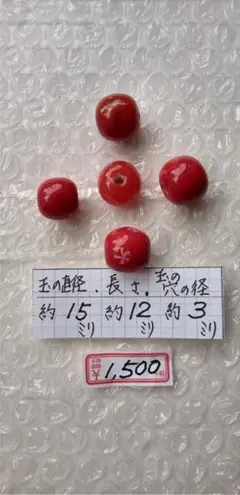 玉の直径・長さ・玉の穴の径
約15ミリ 約12ミリ 約3ミリ
¥1,500